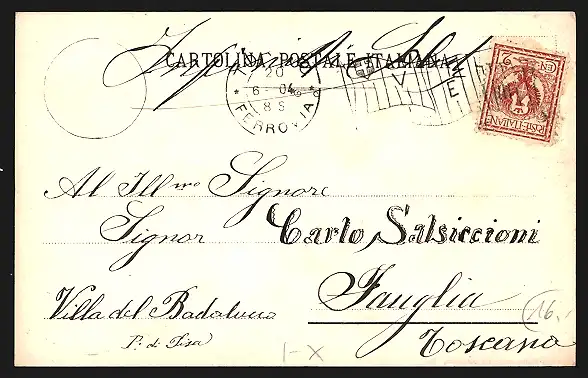 CARTOLINA POSTALE ITALIANA
20
6 04
8 S
FERROVIA
V E
POSTE ITALIANE
CEN 2
Al Ill.mo Signore
Signor Carlo Salsiccioni
Villa del Badalucco
Fauglia
P. di Pisa
Toscana
16.
1-X